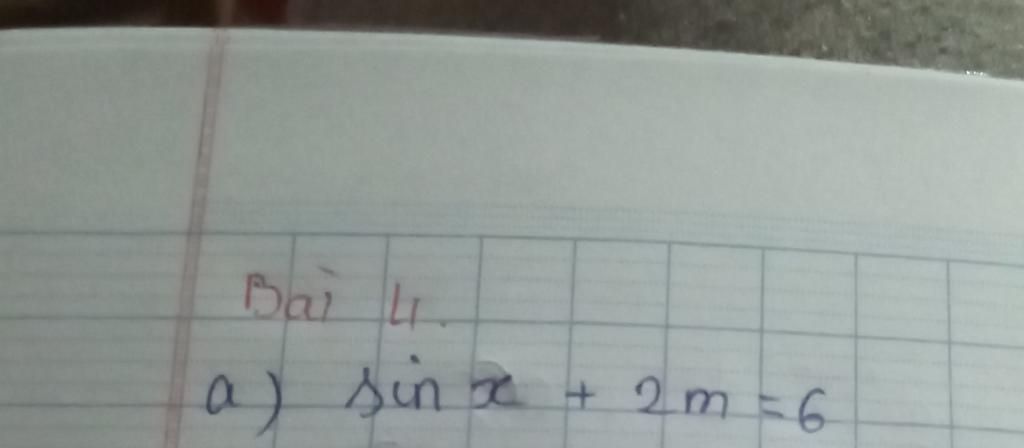 Bài 4.
a) sin x + 2m = 6